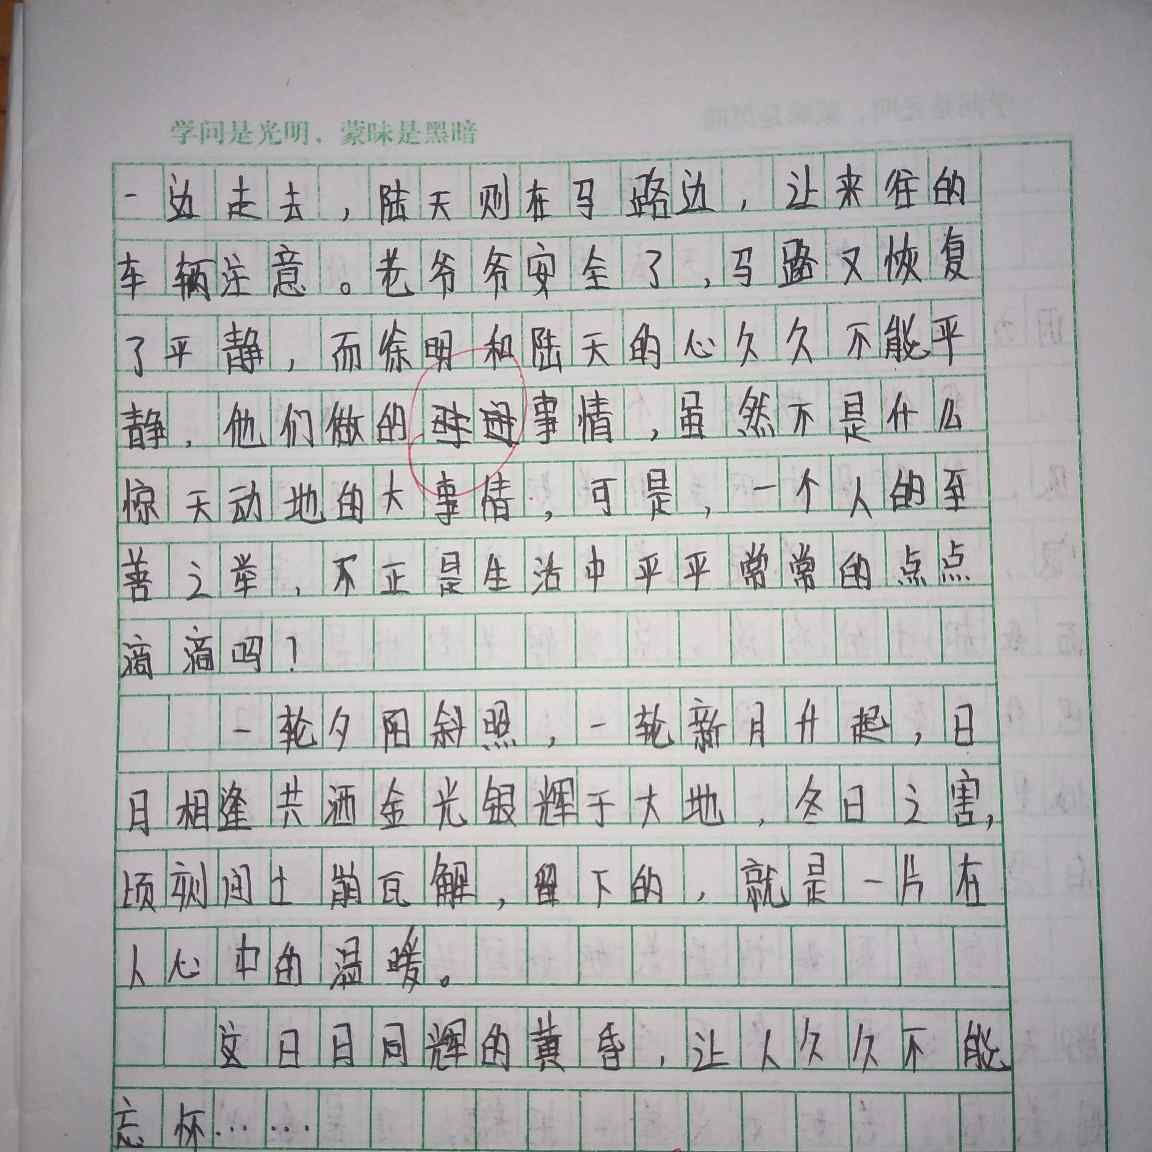 学问是光明，蒙昧是黑暗
一边走去，陆天则在马路边，让来往的
车辆注意。老爷爷安全了，马路又恢复
了平静，而徐明和陆天的心久久不能平
静，他们做的事情，虽然不是什么
惊天动地的大事情，可是，一个人的至
善之举，不正是生活中平平常常的点点
滴滴吗？
一轮夕阳斜照，一轮新月升起，日
月相逢共洒金光银辉于大地，冬日之害，
顷刻间土崩瓦解，留下的，就是一片在
人心中的温暖。
这日月同辉的黄昏，让人久久不能
忘怀……